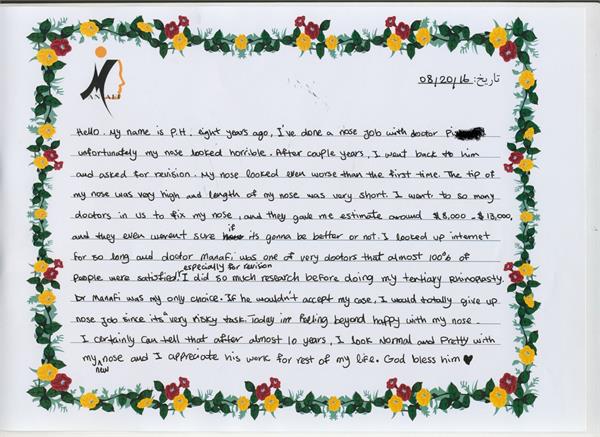 MANAFI
تاریخ: 08/20/16
Hello. My name is P.H. eight years ago, I've done a nose job with doctor
unfortunately my nose looked horrible. After couple years, I went back to him
and asked for revision. My nose looked even worse than the first time. The tip of
my nose was very high and length of my nose was very short. I went to so many
doctors in us to fix my nose, and they gave me estimate around $8,000 - $13,000,
and they even werent sure if its gonna be better or not. I looked up internet
for so long and doctor Manafi was one of very doctors that almost 100% of
people were satisfied especially for revision! I did so much research before doing my tertiary Rhinoplasty.
Dr Manafi was my only choice. If he wouldn't accept my case, I would totally give up
nose job since its a very risky task. Today im feeling beyond happy with my nose.
I certainly can tell that after almost 10 years, I look normal and Pretty with
my new nose and I appreciate his work for rest of my life. God bless him ♥